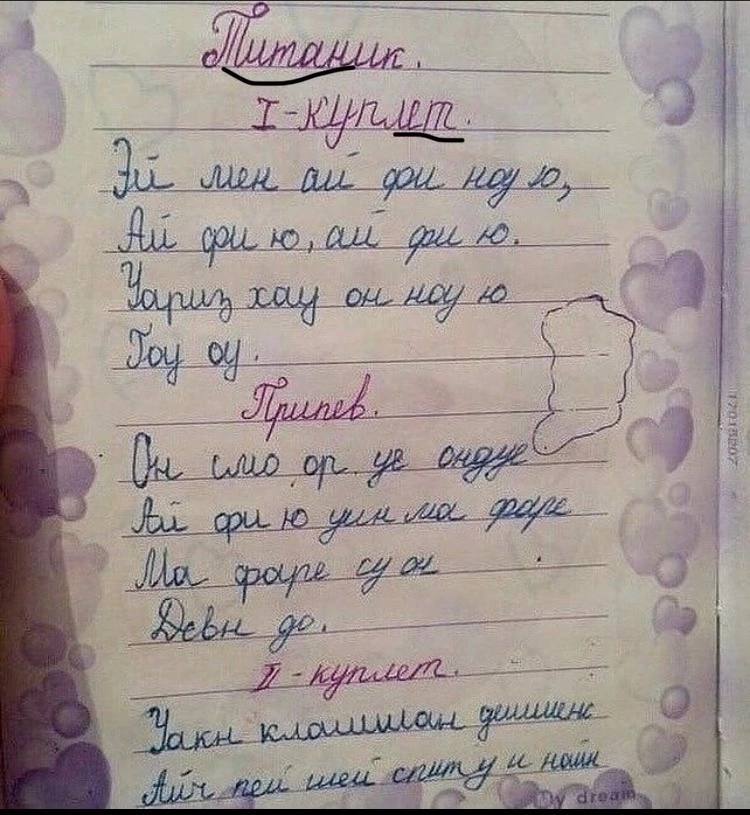 Титаник.
I - куплет.
Эй мен ай фи ноу ю,
Ай фи ю, ай фи ю.
Уариз хау он ноу ю
Гоу оу.
Припев.
Он смо ор уе ондуе
Ай фи ю уин ма фаре
Ма фаре су он
Девн до.
II - куплет.
Уакн клашиан дешиенс
Айч пей шей спит у и найн
My dream
17018207